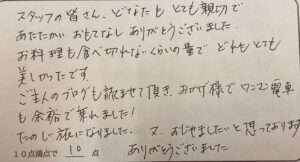 スタッフの皆さん、どなたも とても親切で
あたたかい おもてなし ありがとうございました。
お料理も食べ切れないくらいの量で どれも とても
美しかったです
ご主人のブログも 読ませて頂き、おかげ様で ワニマ 電車
も余裕で乗れました!
たのしい旅になりました。 又、おじゃましたいと思っております
10点満点で 10 点 ありがとうございました